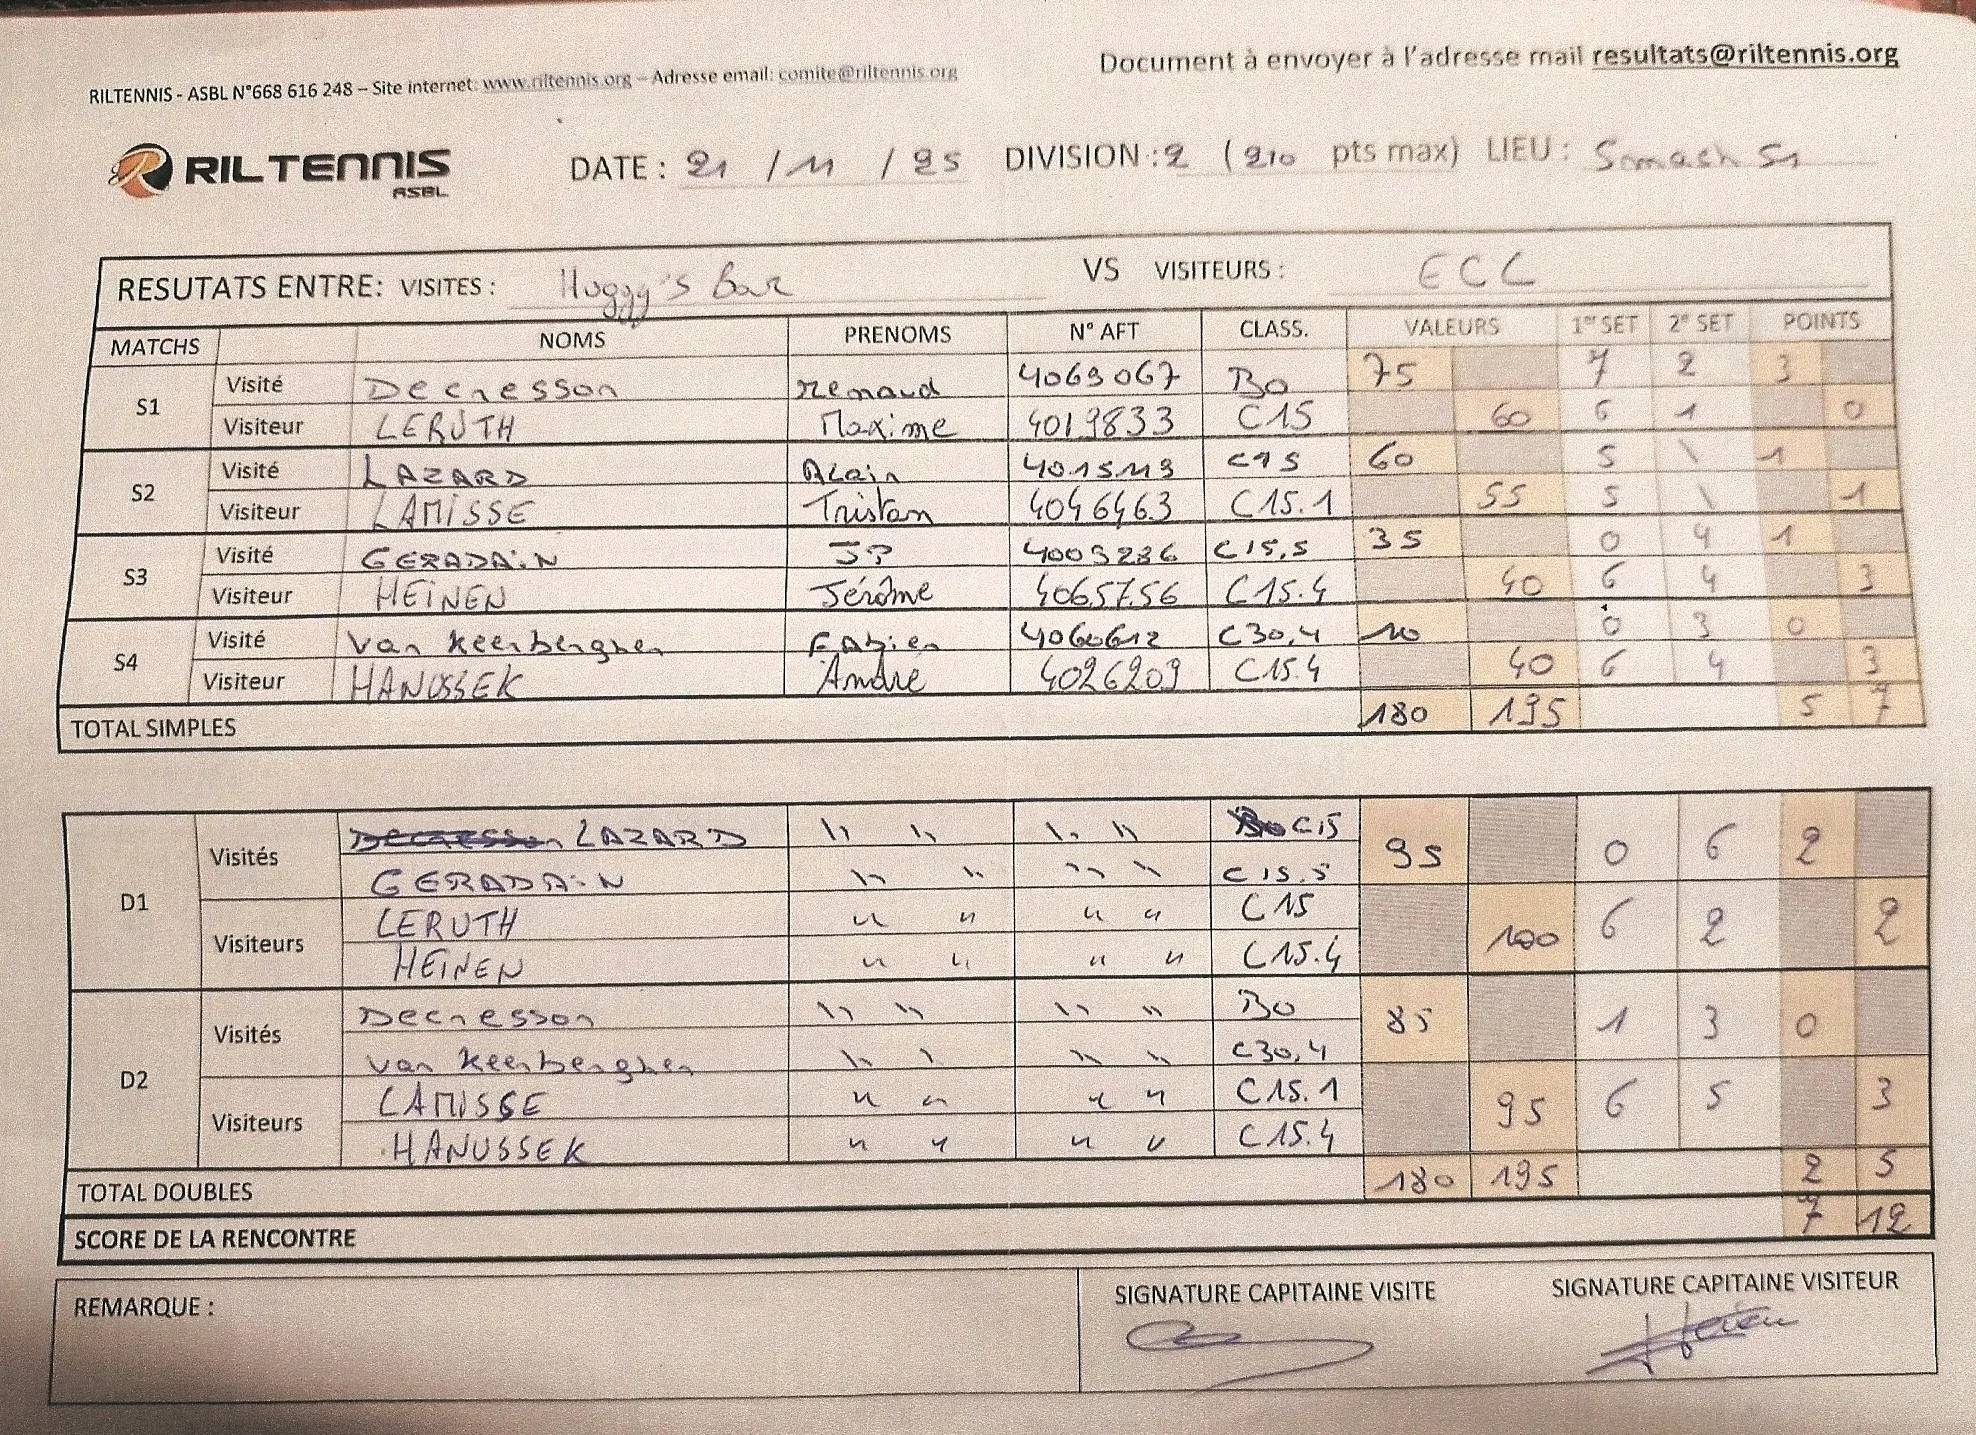 RILTENNIS - ASBL N°668 616 248 – Site internet: www.riltennis.org – Adresse email: comite@riltennis.org
Document à envoyer à l'adresse mail resultats@riltennis.org
RILTENNIS ASBL
DATE : 21 / 11 / 25 DIVISION : 2 (210 pts max) LIEU : Smash 51
RESUTATS ENTRE: VISITES : Huggy's Bar VS VISITEURS : ECC
MATCHS NOMS PRENOMS N° AFT CLASS. VALEURS 1er SET 2e SET POINTS
S1 Visité Decresson Renaud 4069067 B0 75 7 2 3
Visiteur LERUTH Maxime 4019833 C15 60 6 1 0
S2 Visité LAZARD Alain 4015119 C15 60 5 \ 1
Visiteur LAMISSE Tristan 4046463 C15.1 55 5 \ 1
S3 Visité GERADAIN JP 4009286 C15,5 35 0 4 1
Visiteur HEINEN Jérôme 4065756 C15.4 40 6 4 3
S4 Visité Van Keerberghen Fabien 4060612 C30,4 10 0 3 0
Visiteur HANUSSEK André 4026209 C15.4 40 6 4 3
TOTAL SIMPLES 180 195 5 7
D1 Visités Decresson LAZARD " " " " B0 C15 95 0 6 2
GERADAIN " " " " C15.5
Visiteurs LERUTH " " " " C15 100 6 2 2
HEINEN " " " " C15.4
D2 Visités Decresson " " " " B0 85 1 3 0
Van Keerberghen " " " " C30,4
Visiteurs LAMISSE " " " " C15.1 95 6 5 3
HANUSSEK " " " " C15.4
TOTAL DOUBLES 180 195 2 5
SCORE DE LA RENCONTRE 7 12
REMARQUE :
SIGNATURE CAPITAINE VISITE
SIGNATURE CAPITAINE VISITEUR